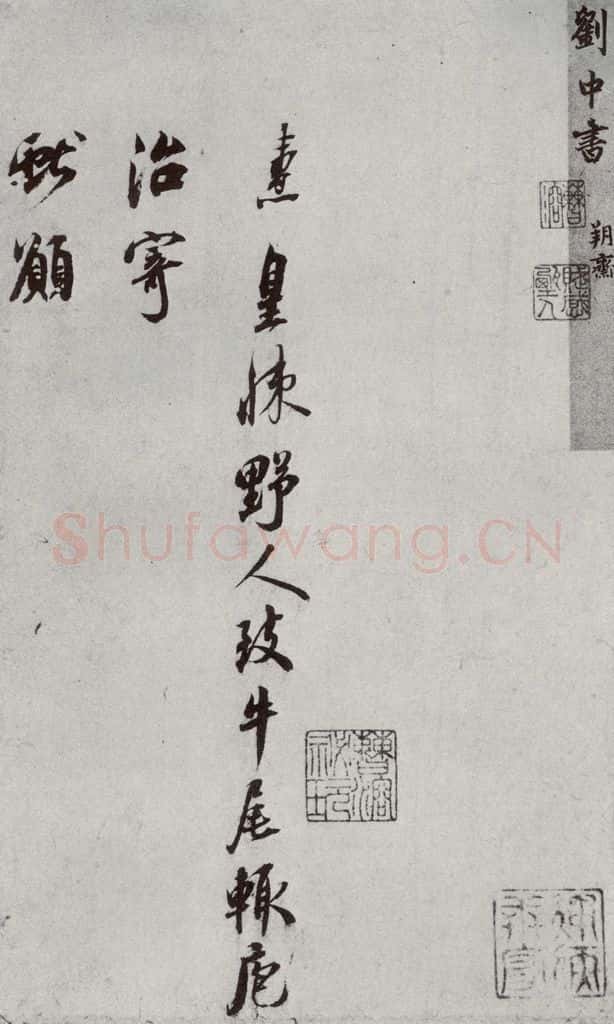 劉中書
朔齋
皇悚野人致牛尾輙庖
治寄
獻
Shufawang.CN